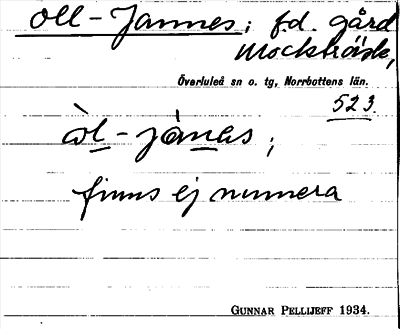 Oll-Jannes; f.d. gård
Mockträsk,
Överluleå sn o. tg, Norrbottens län.
523.
òl-jànas;
finns ej numera
GUNNAR PELLIJEFF 1934.